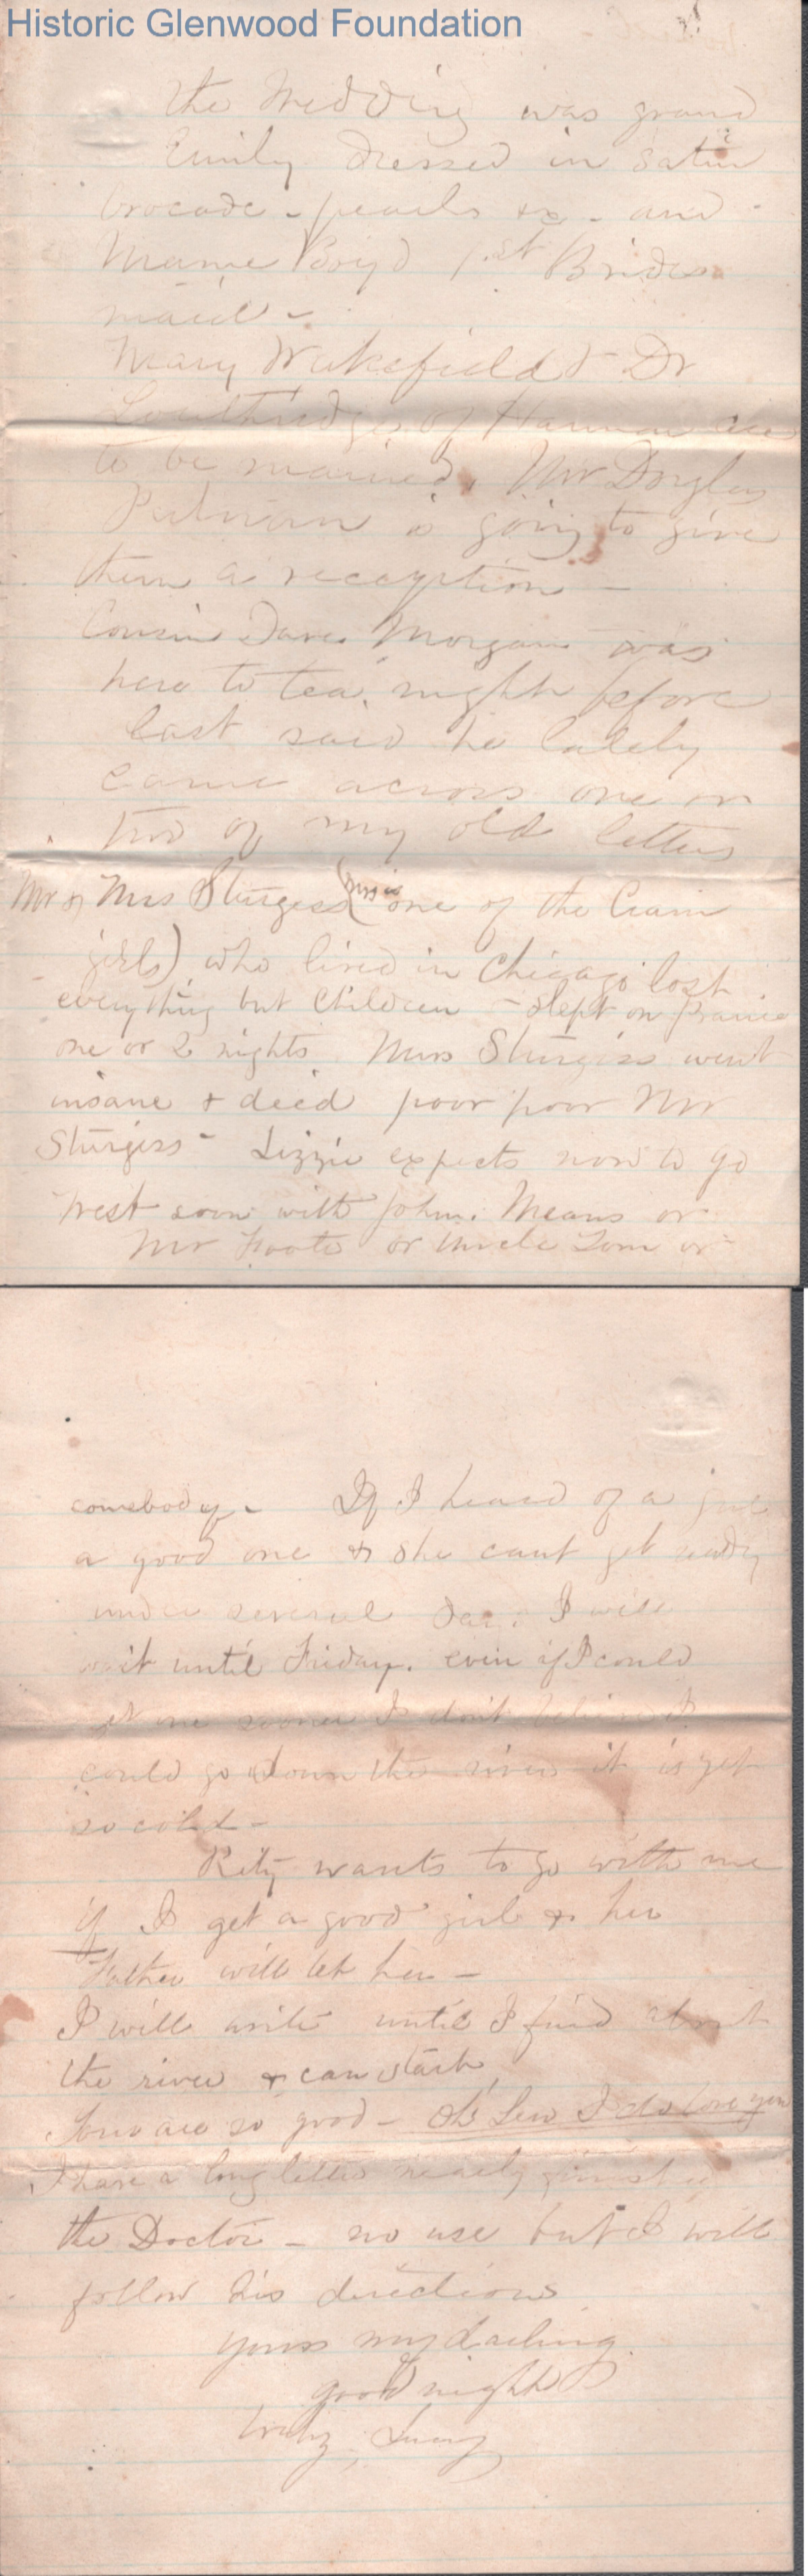 Historic Glenwood Foundation
The Wedding was grand
Emily dressed in Satin
brocade - pearls &c - and -
Mame Boyd 1st Brides
maid -
Mary Wakefield & Dr
of Harmar are
to be married. Mr Douglas
Putnam is going to give
them a reception -
Cousin Dave Morgan was
here to tea, night before
last said he lately
came across one or
two of my old letters
Mr & Mrs Sturgess (Mrs is one of the
girls) who lived in Chicago lost
everything but Children - slept on Prairie
one or 2 nights. Mrs Sturgiss went
insane & died poor poor Mr
Sturgiss - Lizzie expects now to go
West soon with John Means or
Mr Foote or Uncle Tom or
somebody - If I heard of a girl
a good one & she cant get ready
under several days I will
wait until Friday. even if I could
get one sooner I don't believe I
could go down the river it is yet
so cold -
wants to go with me
if I get a good girl & her
Father will let her -
I will write until I find about
the river & can start
You are so good - Oh Lew I do love you
I have a long letter nearly finished
the Doctor - no use but I will
follow his directions
yours my darling
good night
Lucy